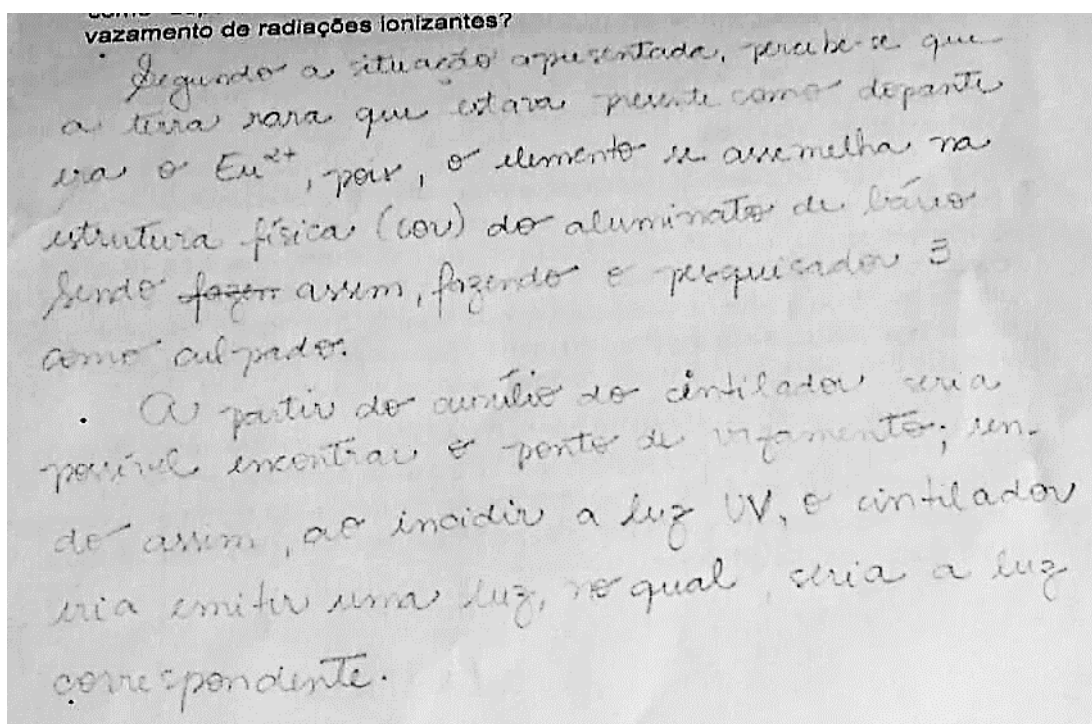 vazamento de radiações ionizantes?
Segundo a situação apresentada, percebe-se que
a terra rara que estava presente como dopante
era o Eu²⁺, pois, o elemento se assemelha na
estrutura física (cor) do aluminato de bário
Sendo fazem assim, fazendo o pesquisador 3
como culpado.
• A partir do auxílio do cintilador seria
possível encontrar o ponto de vazamento; sen-
do assim, ao incidir a luz UV, o cintilador
iria emitir uma luz, no qual, seria a luz
correspondente.